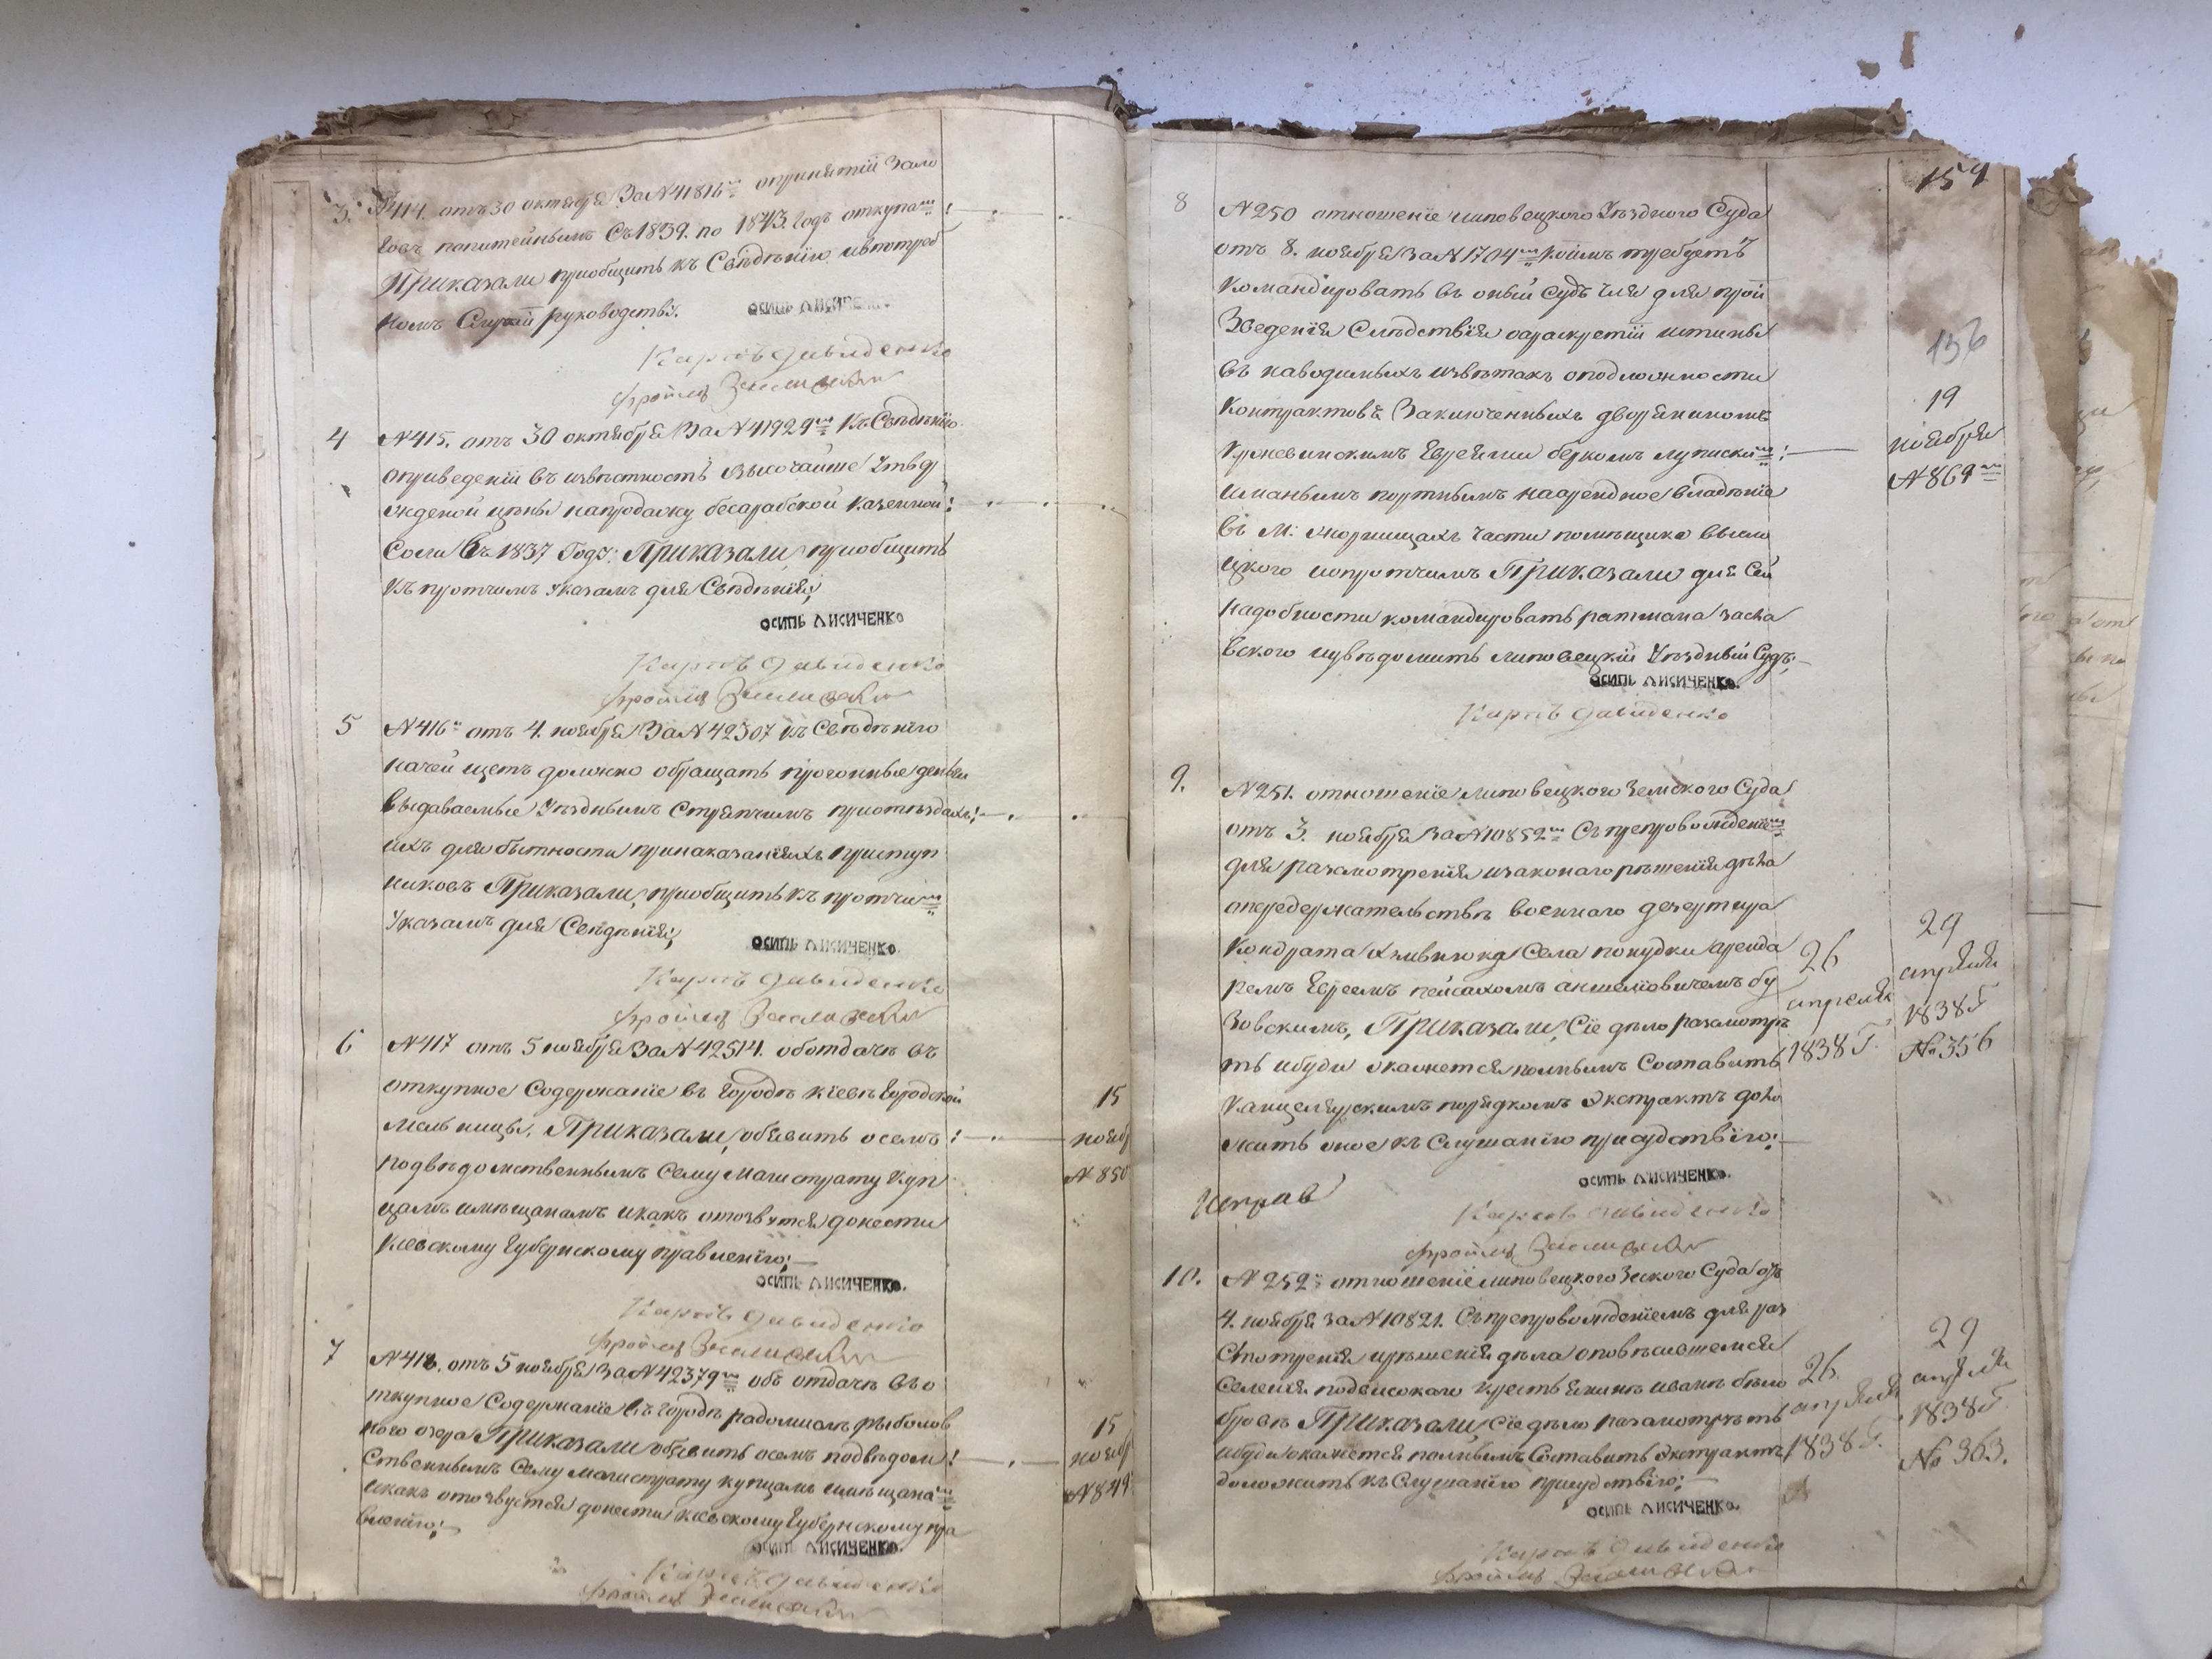 3. N 414. отъ 30 октября За N 41816мъ опринятіи Зало
говъ попитейнымъ Съ 1839. по 1843. Годъ откупамъ
Приказали приобщить къ Свѣдѣнію ивпотреб
номъ Случаи руководству.
ОСИПЪ ЛИСИЧЕНКО.
Карпъ Давиденко
4 N 415. отъ 30 октября За N 41929мъ Къ Свѣдѣнію
оприведеніи въ извѣстность Высочайше Утвѣр
жденой цѣны напродажу бесарабской Казенной
Соли Въ 1837 Году: Приказали, приобщить
Къ протчимъ Указамъ для Свѣдѣнія;
ОСИПЪ ЛИСИЧЕНКО
Карпъ Давиденко
5 N 416й отъ 4. ноября За N 42307 къ Свѣдѣнію
начей щетъ должно обращать прогонные деньги
выдаваемые Уѣзднымъ Стряпчимъ приотъѣздахъ
ихъ для бытности принаказаніяхъ приступ
никовъ Приказали, приобщить къ протчимъ
Указамъ для Свѣдѣнія;
ОСИПЪ ЛИСИЧЕНКО.
Карпъ Давиденко
6 N 417 отъ 5 ноября За N 42514. оботдачѣ въ
откупное Содержаніе въ Городѣ Кіевѣ Городской
мельницы, Приказали, объявить осемъ
подвѣдомственнымъ Сему Магистрату Куп
цамъ имѣщанамъ икакъ отозвутся донести
Кіевскому Губернскому правленію;
15
ноябр
N 850
ОСИПЪ ЛИСИЧЕНКО.
Карпъ Давиденко
7 N 418. отъ 5 ноября За N 42379мъ объ отдачѣ въ о
ткупное Содержаніе въ Городѣ радомислѣ рыболов
ного озера Приказали объявить осемъ подвѣдом
Ственнымъ Сему Магистрату купцамъ имѣщанамъ
икакъ отозвутся донести кіевскому Губернскому пра
вленію;
15
ноябр
N 849
ОСИПЪ ЛИСИЧЕНКО.
Карпъ Давиденко
159
156
8 N 250 отношеніе липовецкого Уѣздного Суда
отъ 8. ноября За N 1704мъ Коимъ требуетъ
Командировать въ оный Судъ Члена для прои
Зведенія Слѣдствія ораскрытіи истины
въ наводимыхъ извѣтахъ оподложности
Контрактовъ Заключенныхъ дворяниномъ
Евреями беркомъ
портнымъ наарендное владѣніе
въ М: части помѣщика высло
цкого ипротчимъ Приказали для Сей
надобности командировать ратмана засла
вского иувѣдомить липовецкій Уѣздный Судъ;
19
ноября
N 869мъ
ОСИПЪ ЛИСИЧЕНКО.
Карпъ Давиденко
9. N 251. отношеніе липовецкого Земского Суда
отъ 3. ноября За N 10852мъ Съ препровожденіемъ
для разсмотренія изаконаго рѣшенія дѣла
опередержательствѣ военнаго дезертира
Кондрата Села аренда
ремъ Евреемъ пейсахомъ аншелiовичемъ бу
зовскимъ, Приказали, Сіе дѣло разсмотрѣ
ть ибуди окажется полнымъ Составить
Канцелярскимъ порядкомъ Экстрактъ доло
жить оное къ Слушанію присудствію;
26
апреля
1838 Г.
29
апреля
1838 Г
No 356
ОСИПЪ ЛИСИЧЕНКО.
Карпъ Давиденко
10. N 252й отношеніе липовецкого Земского Суда отъ
4. ноября за N 10821. Съ препровожденіемъ для раз
Смотренія ирѣшенія дѣла оповѣсившемся
Селенія подвисокаго крестьянинѣ иванѣ бѣло
бровѣ Приказали, Сіе дѣло разсмотрѣть
ибуди окажется полнымъ Составить Экстрактъ
доложить къ Слушанію присудствію;
26
апреля
1838 Г.
29
апреля
1838 Г.
No 363.
ОСИПЪ ЛИСИЧЕНКО.
Карпъ Давиденко